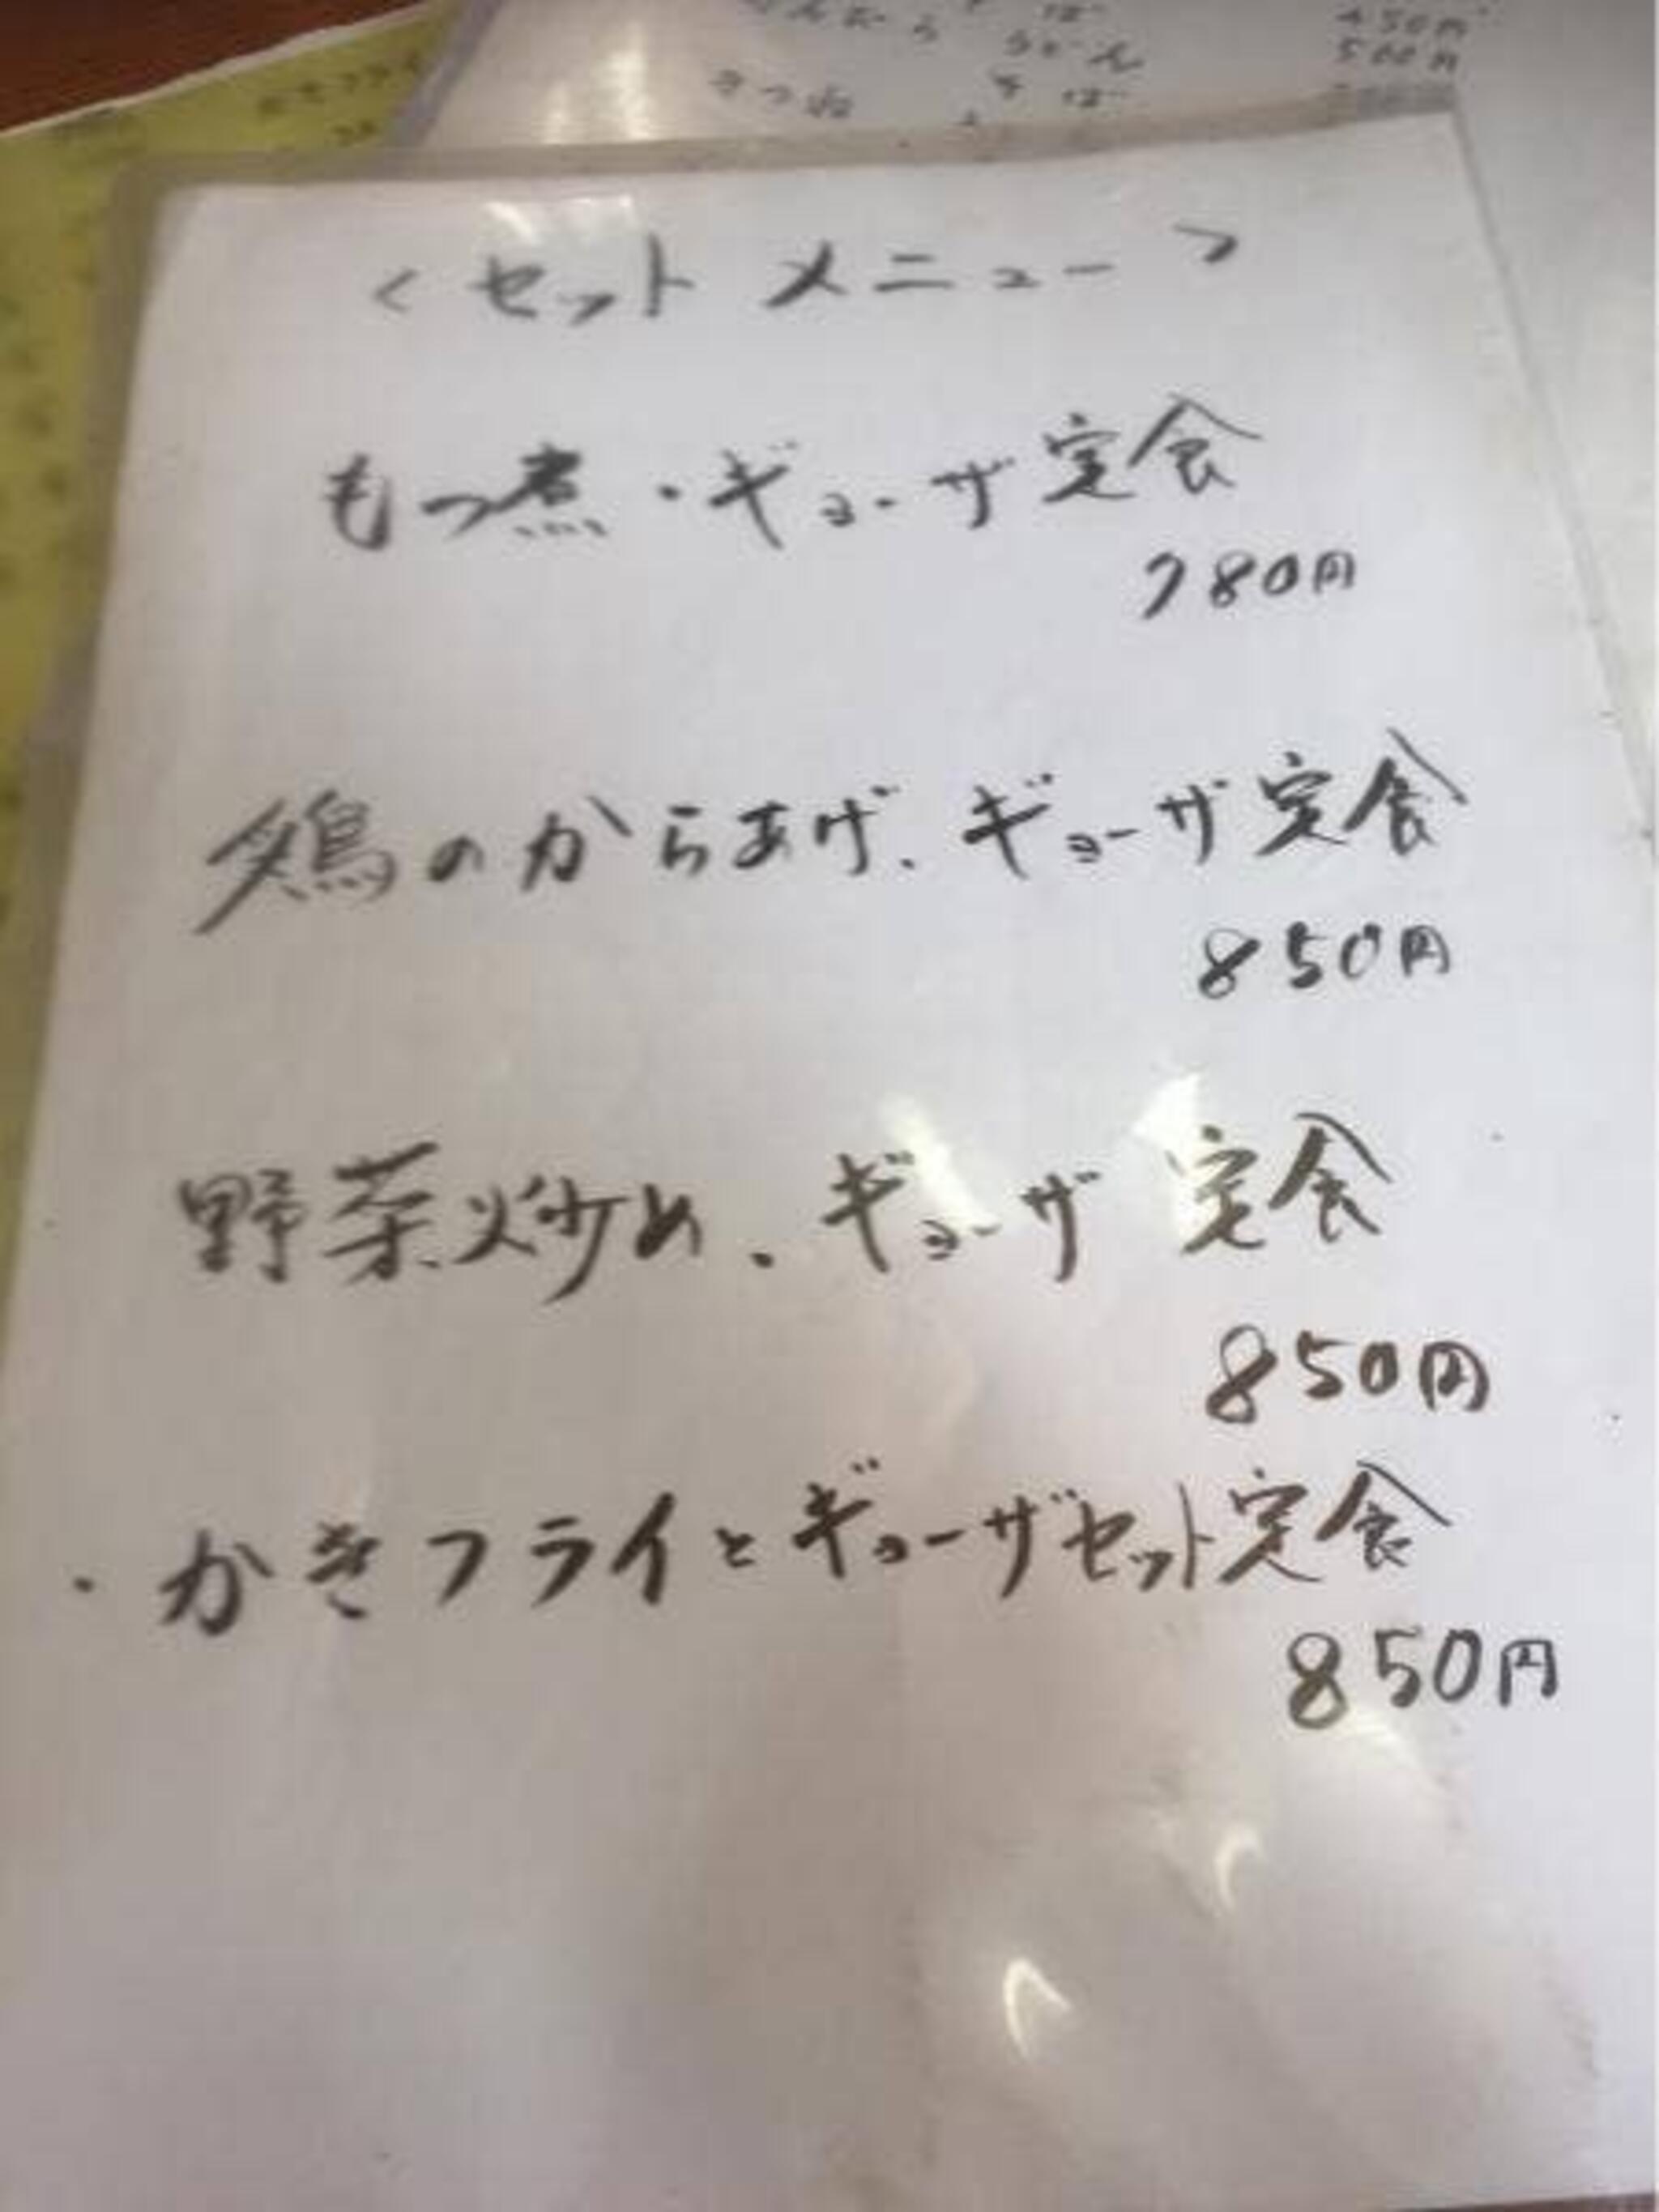 うどん
450円
500円
きつね
そば
<セットメニュー>
もつ煮・ギョーザ定食
780円
鶏のからあげ、ギョーザ定食
850円
野菜炒め、ギョーザ定食
850円
・かきフライとギョーザセット定食
850円